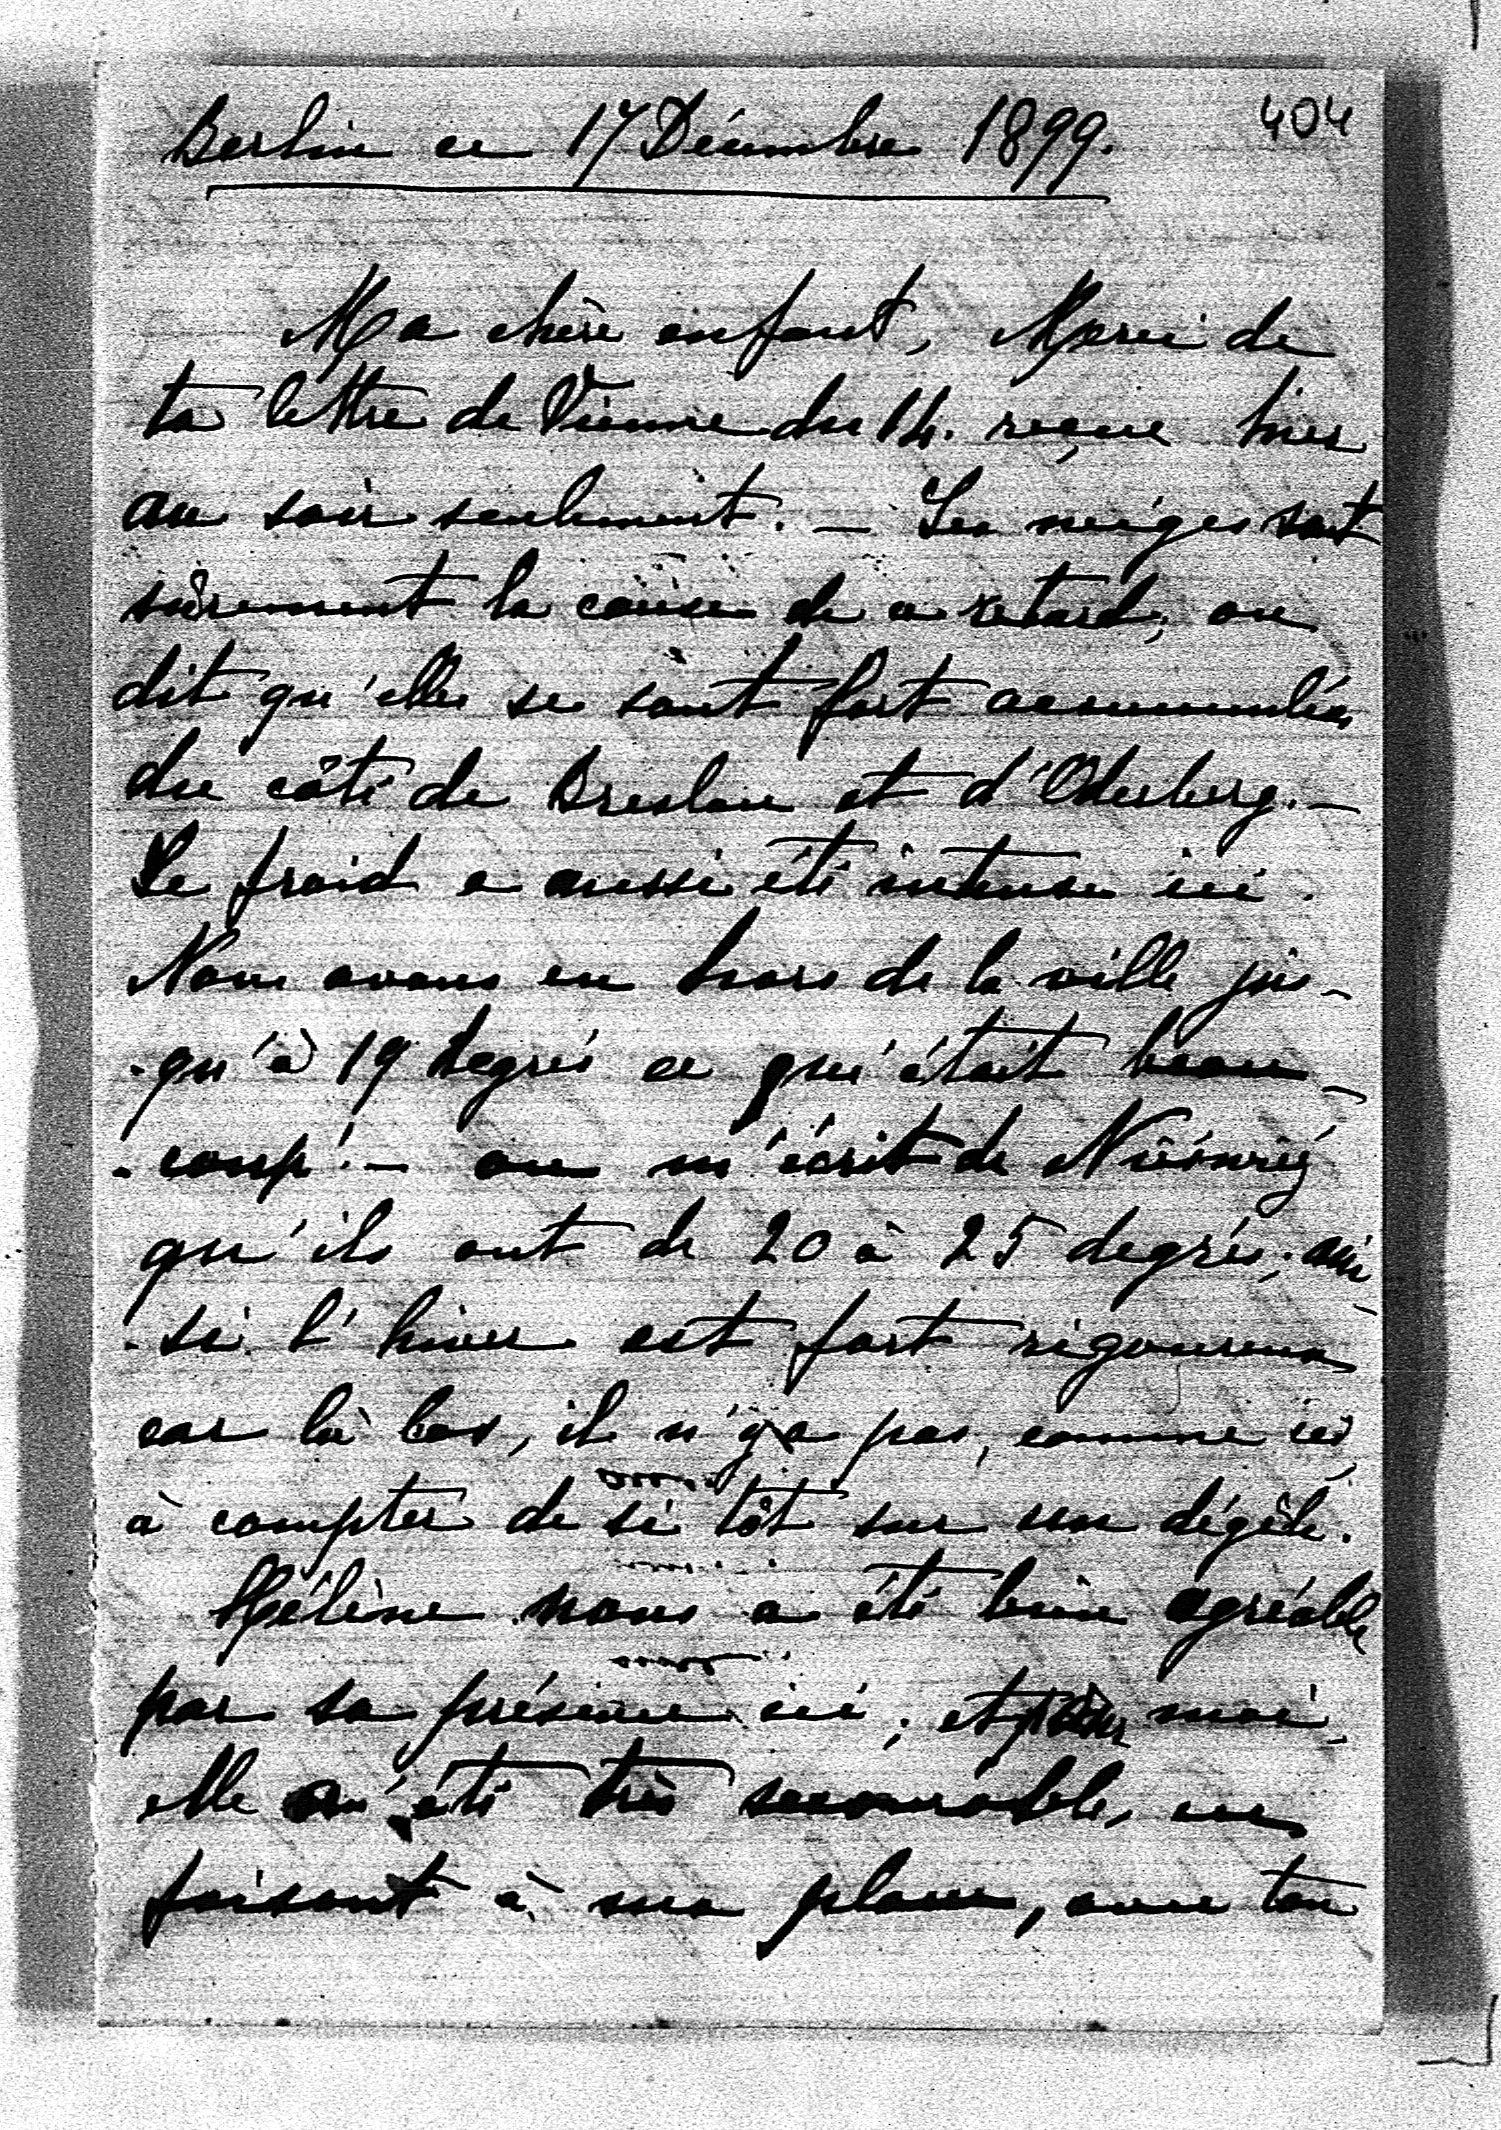 404
Berlin ce 17 Décembre 1899.
Ma chère enfant, Merci de
ta lettre de Vienne du 14. reçue hier
au soir seulement. – Les neiges sont
sûrement la cause de ce retard; on
dit qu'elles se sont fort accumulées
du côté de Breslau et d'Oderberg. –
Le froid a aussi été intense ici.
Nous avons eu hors de la ville jus-
-qu'à 19 degrés ce qui était beau-
-coup! – on m'écrit de Nieświéź
qu'ils ont de 20 à 25 degrés; ain-
-si l'hiver est fort rigoureux
car là bas, il n'y a pas, comme ici
à compter de si tôt sur un dégèle.
Hélène nous a été bien agréable
par sa présence ici; et pour moi,
elle m'a été très secourable, en
faisant à ma place, avec ton